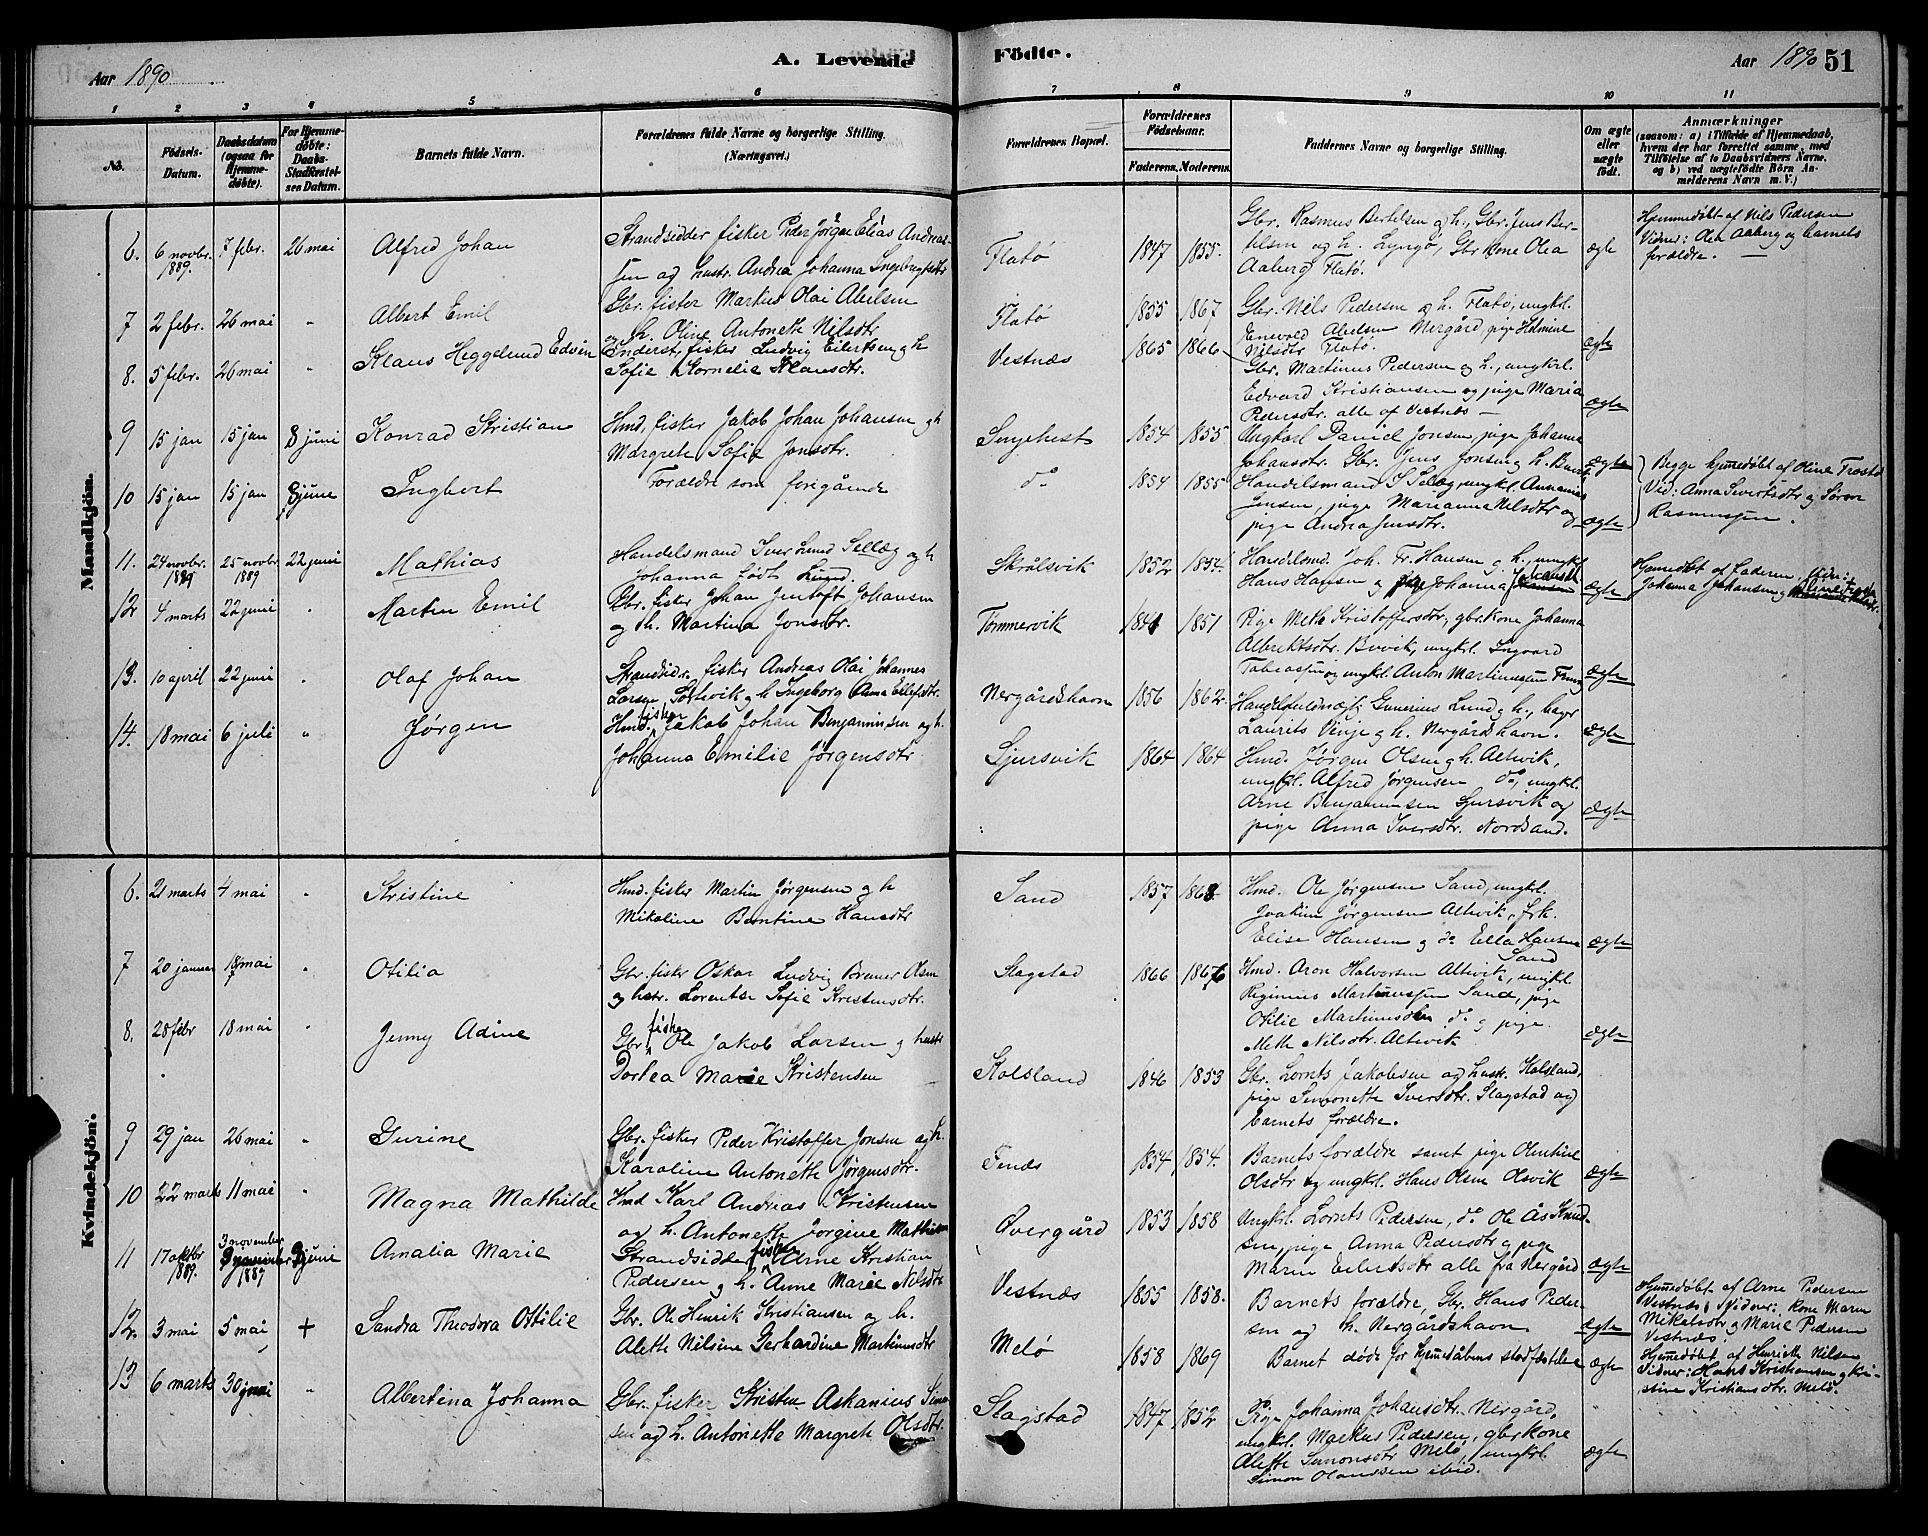 Aar 1890
A. Levende
Födte.
Aar 1890
51
1 2 3 4 5 6
7 8 9 10 11
No.
Födsels-Datum.
Daabsdatum (ogsaa for Hjemmedöbte).
For Hjemmedøbte: Daabs-Stadfæstelses Datum.
Barnets fulde Navn.
Forældrenes fulde Navne og borgerlige Stilling. (Næringsvei.)
Forældrenes Bopæl.
Forældrenes Födselsaar.
Faderens. Moderens.
Faddernes Navne og borgerlige Stilling.
Om ægte eller uægte født.
Anmærkninger
(saasom: a) i Tilfælde af Hjemmedaab, hvem der har forrettet samme, med Tilföielse af to Daabsvidners Navne, og b) ved uægtefödte Börn Anmelderens Navn m. V.)
Mandkjön.
6. 6 novbr. 1889. 7 febr. 26 mai
Alfred Johan
Strandsidder fisker Peder Jørgen Elias Andreas-
sen og hustr. Andrea Johanna Ingebrigtsdtr
Flatø 1847 1855.
Gbr. Rasmus Bertelsen og h., Gbr. Jens Ber-
telsen og h. Lyngø, Gbr kone Olea
Aaberg Flatø.
ægte
Hjemmedöbt af Nils Pedersen
Vidner: Olea Aaberg og barnets
forældre.
7 2 febr. 26 mai "
Albert Emil
Gbr. fisker Markus Olai Abelsen
og h. Oline Antonette Nilsdtr
Flatø 1855 1867
Gbr. Nils Pedersen og h. Flatø, ungkl.
Enevold Abelsen Nergård, pige Holmine
Nilsdtr Flatø.
ægte
8. 5 febr. 26 mai "
Klaus Heggelund Edvin
Inderst, fisker Ludvig Eilertsen og h
Sofie Kornelie Klausdtr.
Vestnæs 1865 1866
Gbr. Martinus Pedersen og h., ungkrl.
Edvard Kristiansen og pige Maria
Pedersdtr. alle af Vestnæs –
ægte
9 15 jan 15 jan 8 juni
Konrad Kristian
Hmd. fisker Jakob Johan Johansen og h
Margrete Sofie Jonsdtr.
Sengehest 1854 1855
Ungkarl Daniel Jonsen pige Johanna
Johansdtr. Gbr. Jens Jonsen og h.
ægte
10 15 jan 15 jan 8 june
Ingbert
Forældre som foregående
do 1854 1855
Handelsmand S Sellæg, ungkl. Annanias
Jensen, pige Marianna Nilsdtr og
pige Andrea Jensdtr.
ægte
Begge hjemedöbt af Oline Trostad
Vid: Anna Sivertsdtr og Sören
Rasmussen.
11. 24 novbr. 1889 25 novbr 1889 22 juni
Mathias
Handelsmand Iver Lund Sellæg og h
Johanna født Lund.
Skrålsvik 1852 1854.
Handelsmd. Joh. Fr. Hansen og h., ungkl
Hans Hansen og pige Johanna Johansen
ægte
Hjemedöbt af Faderen, Vidner:
Johanna Johansen og
12 4 marts 22 juni "
Martin Emil
Gbr. fisker Johan Jentoft Johansen
og h. Martina Jonsdtr.
Tømmervik 1841 1851
Pige Mette Kristoffersdtr, gbr. kone Johanna
Albriktsdtr. Buvik, ungkl. Ingvard
Tobiassen og ungkl. Anton Martinussen
ægte
13. 10 april 22 juni "
Olaf Johan
Strandsidr. fisker Andreas Olai Johannes
Larsen Sølvik og h Ingeborg Anna Ellefsdtr.
Nergårdshavn 1856 1862
Handelsfuldmægt. Gunerius Lund og h., bager
Laurits Vinje og h. Nergårdshavn.
ægte
14. 18 mai 6 juli "
Jørgen
Hmd. fisker Jakob Johan Benjaminsen og h.
Johanna Emilie Jørgensdtr
Sjursvik 1864 1864
Hmd. Jørgen Olsen og h. Altevik,
ungkl. Alfred Jørgensen do, ungkl.
Arne Benjaminsen Sjursvik og
pige Anna Iversdtr. Nordsand.
ægte
Kvindekjön.
6. 21 marts 4 mai "
Kristine
Hmd. fisker Martin Jørgensen og h
Mikaline Bentine Hansdtr
Sand 1857 1868
Hmd. Ole Jørgensen Sand, ungkl.
Joakim Jørgensen Altevik, frk.
Elise Hansen og do Ella Hansen
Sand
ægte
7 20 januar 18 mai "
Otilia
Gbr. fisker Oskar Ludvig Bremer Olsen
og hstr. Lorentse Sofie Kristensdtr.
Slagstad 1866 1867
Hmd. Aron Halvorsen Altevik, ungkl
Reginius Martinussen Sand, pige
Otilie Martinusdtr do og pige
Mette Nilsdtr. Altevik
ægte
8. 28 febr 18 mai "
Jenny Adine
Gbr. fisker Ole Jakob Larsen og hustr
Dortea Marie Kristensen
Kolsland 1846 1853
Gbr. Lorents Jakobsen og hustr. Kolsland,
pige Simonette Iversdtr. Slagstad og
barnets forældre.
9 29 jan 26 mai "
Gurine
Gbr. fisker Peder Kristoffer Jonsen og h.
Karoline Antonette Jørgensdtr.
Finnæs 1854 1854.
Barnets forældre samt pige Olentine
Olsdtr og ungkrl. Hans Olsen Olsvik
ægte
10 22 marts 11 mai "
Magna Mathilde
Hmd Karl Andreas Kristensen
og h. Antonette Jørgine Mathisen
Øvergård 1853 1858
Ungkrl. Lorents Pedersen, do Ole Ås Knud-
sen, pige Anna Pedersdtr og pige
Maren Eilertsdtr alle fra Nergård
ægte
11 17 oktbr 1889. 3 november 1889 8 juni
Amalia Marie
Strandsidder fisker Arne Kristian
Pedersen og h. Anne Marie Nilsdtr
Vestnæs 1855 1858.
Barnets forældre, Gbr. Hans Peder-
sen og h. Nergårdshavn
ægte
Hjemedöbt af Arne Pedersen
Vestnæs, Vidner: kone Maren
Mikalsdtr og Marie Pedersen
Vestnæs.
12. 3 mai 5 mai +
Sandra Theodora Ottilie
Gbr. Ole Henrik Kristiansen og h.
Alette Nilsine Gerhardine Martinusdtr
Melø 1858 1869
Barnet døde før hjemedåbens stadfæstelse
ægte
Hjemedöbt af Henriette Nilsen
Vidner: Hans Kristiansen og Kri-
stine Kristiansdtr. Melø.
13 6 marts 30 juni "
Albertina Johanna
Gbr. fisker Kristen Askanius Simon-
sen og h. Antonette Margrete Olsdtr.
Slagstad 1847 1852
Pige Johanna Johansdtr. Nergård,
ungkl. Markus Pedersen, gbr kone
Alette Simonsdtr Melø, ungkrl.
Simon Olaussen ibid.
ægte